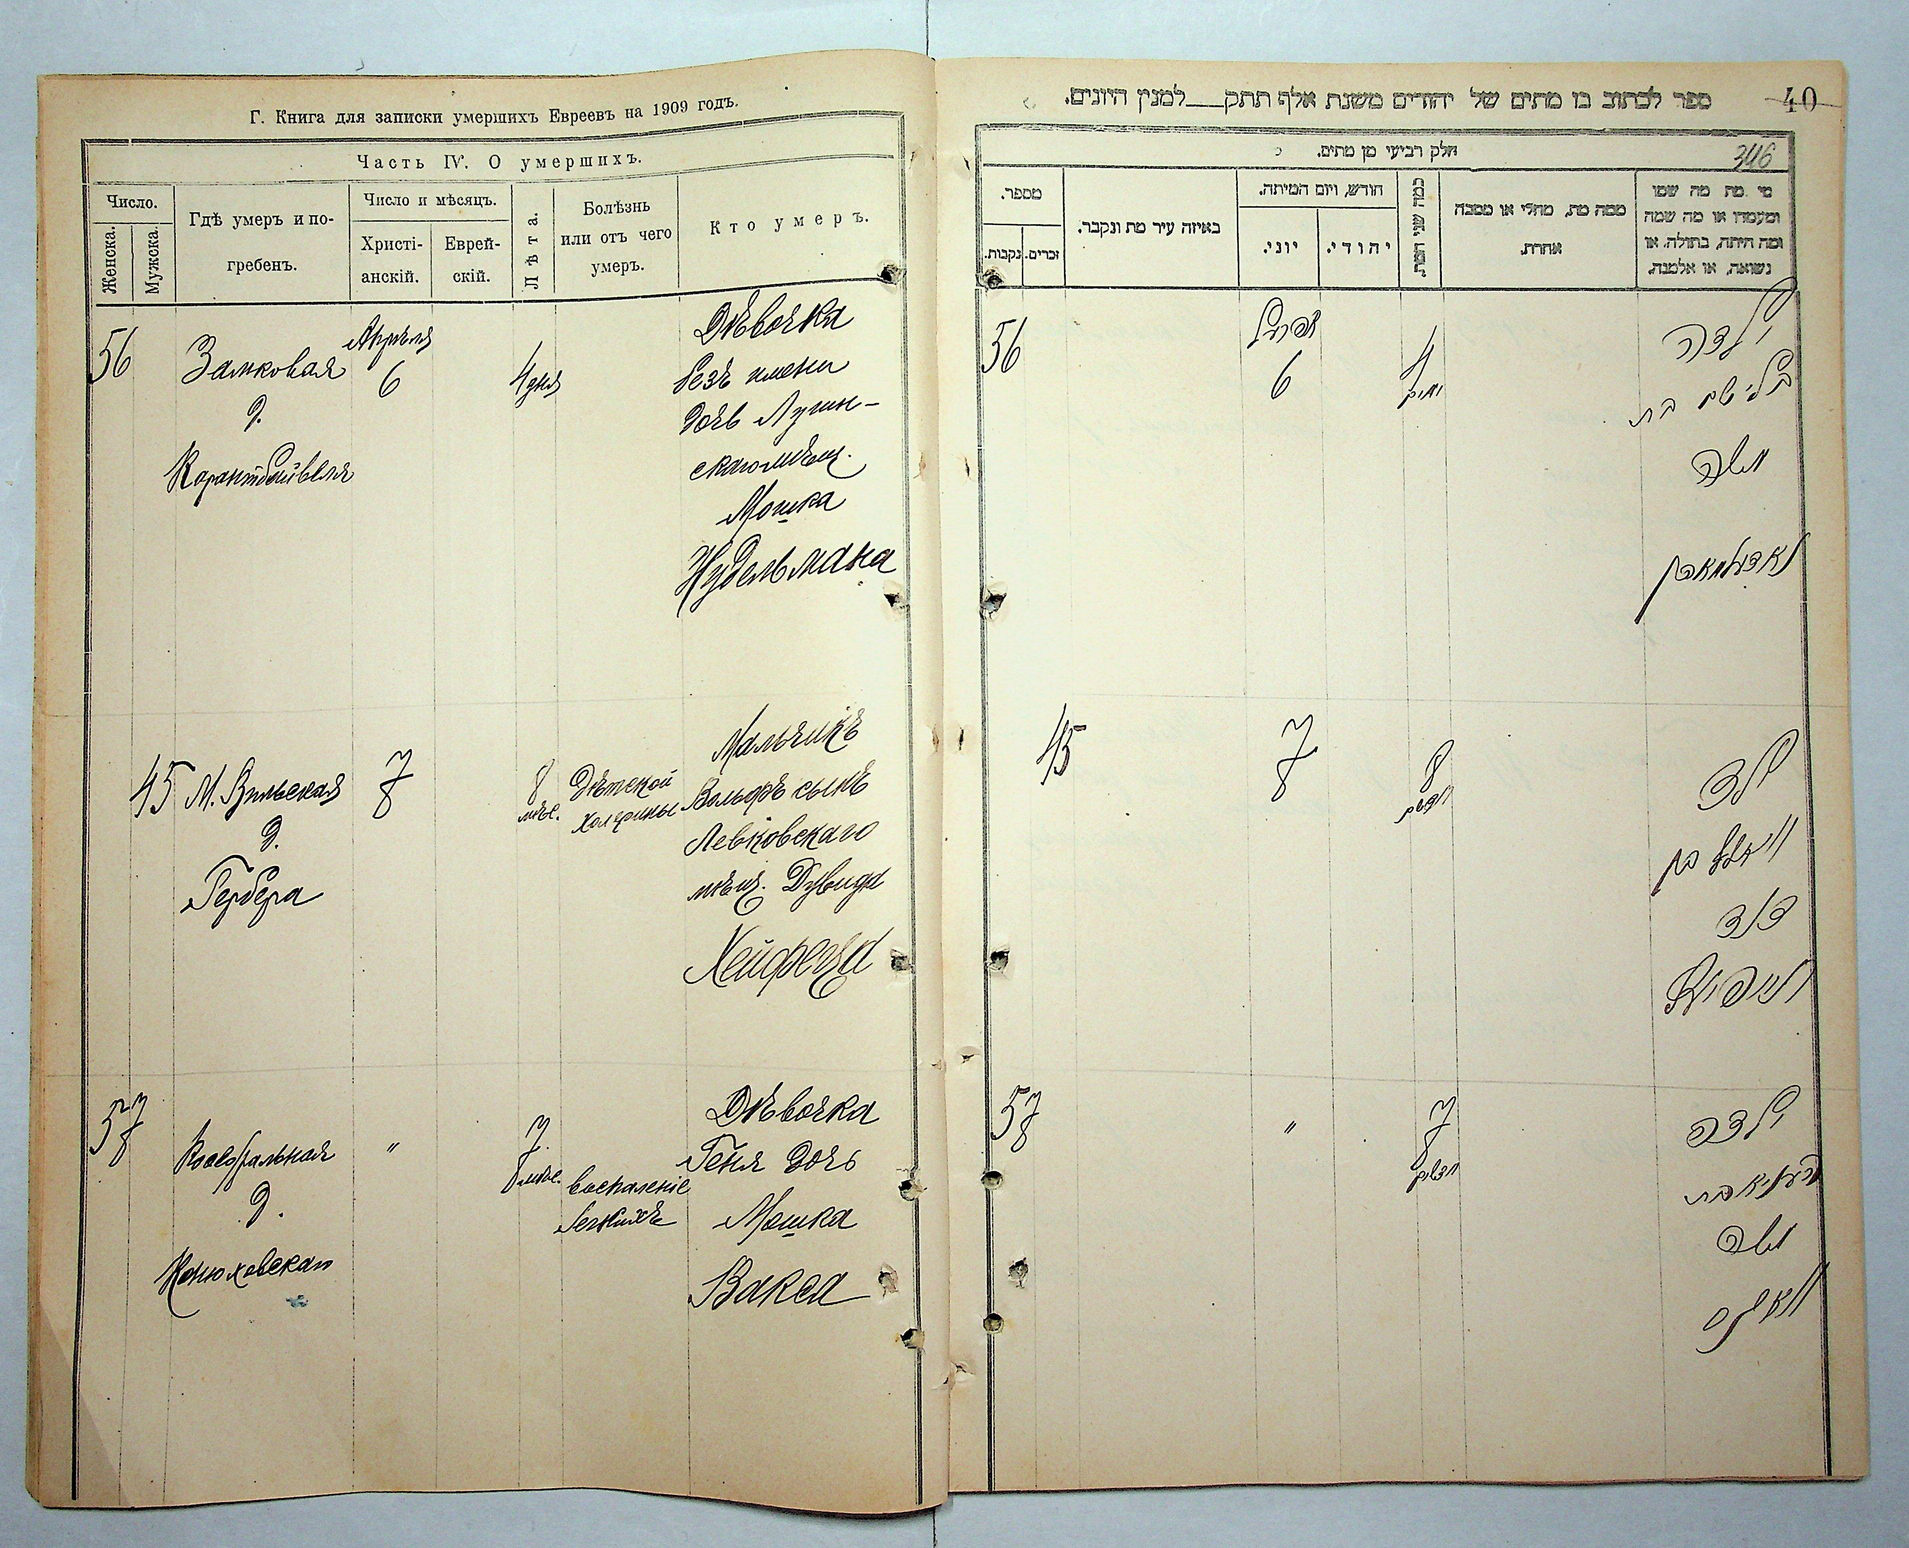 Г. Книга для записки умершихъ Евреевъ на 1909 годъ.
Часть IV. О умершихъ.
Число.
Женска.
Мужска.
Гдѣ умеръ и по-
гребенъ.
Число и мѣсяцъ.
Христі-
анскій.
Еврей-
скій.
Лѣта.
Болѣзнь
или отъ чего
умеръ.
Кто умеръ.
56
Замковая
д.
Апрѣля
6
4 дня
Дѣвочка
безъ имени
дочь Лугин-
скаго мѣщ.
Мошка
Нудельмана
45
М. Вильская
д.
Гербера
7
8
мѣс.
Дѣтской
холерины
Мальчикъ
Вольфъ сынъ
Левковскаго
мѣщ. Дувида
Хейфеца
57
д.
Конюховскаго
"
7
мѣс.
воспаленіе
легкихъ
Дѣвочка
Геня дочь
Мошка
Вакса
40
ספר לכתוב בו מתים של יהודים משנת אלף תתק___למנין היונים.
346
חלק רביעי מן מתים.
מי מת מה שמו
ומעמדו או מה שמה
ומה היתה, בתולה, או
נשואה, או אלמנה.
ממה מת, מחלי או מסבה
אחרת.
כמה שני המת.
חודש, ויום המיתה.
יהודי.
יוני.
באיזה עיר מת ונקבר.
מספר.
זכרים.
נקבות.
56
אפריל
6
4
ימים
ילדה
בלי שם בת
משה
נאדעלמאן
45
7
8
חדשים
ילד
וואלף בן
דוד
חייפיץ
57
"
7
חדשים
ילדה
העניא בת
משה
וואקס